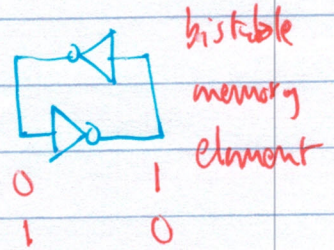 bistable
memory
element
0 1
1 0